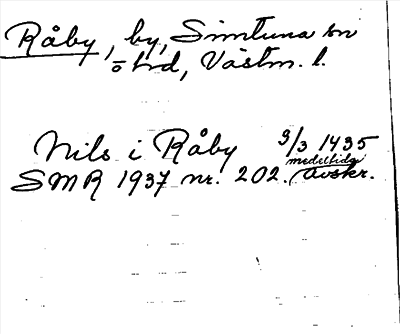 Råby, by, Simtuna sn
o hd, Västm. l.
Nils i Råby 3/3 1435
medeltida
SMR 1937 nr. 202. (avskr.